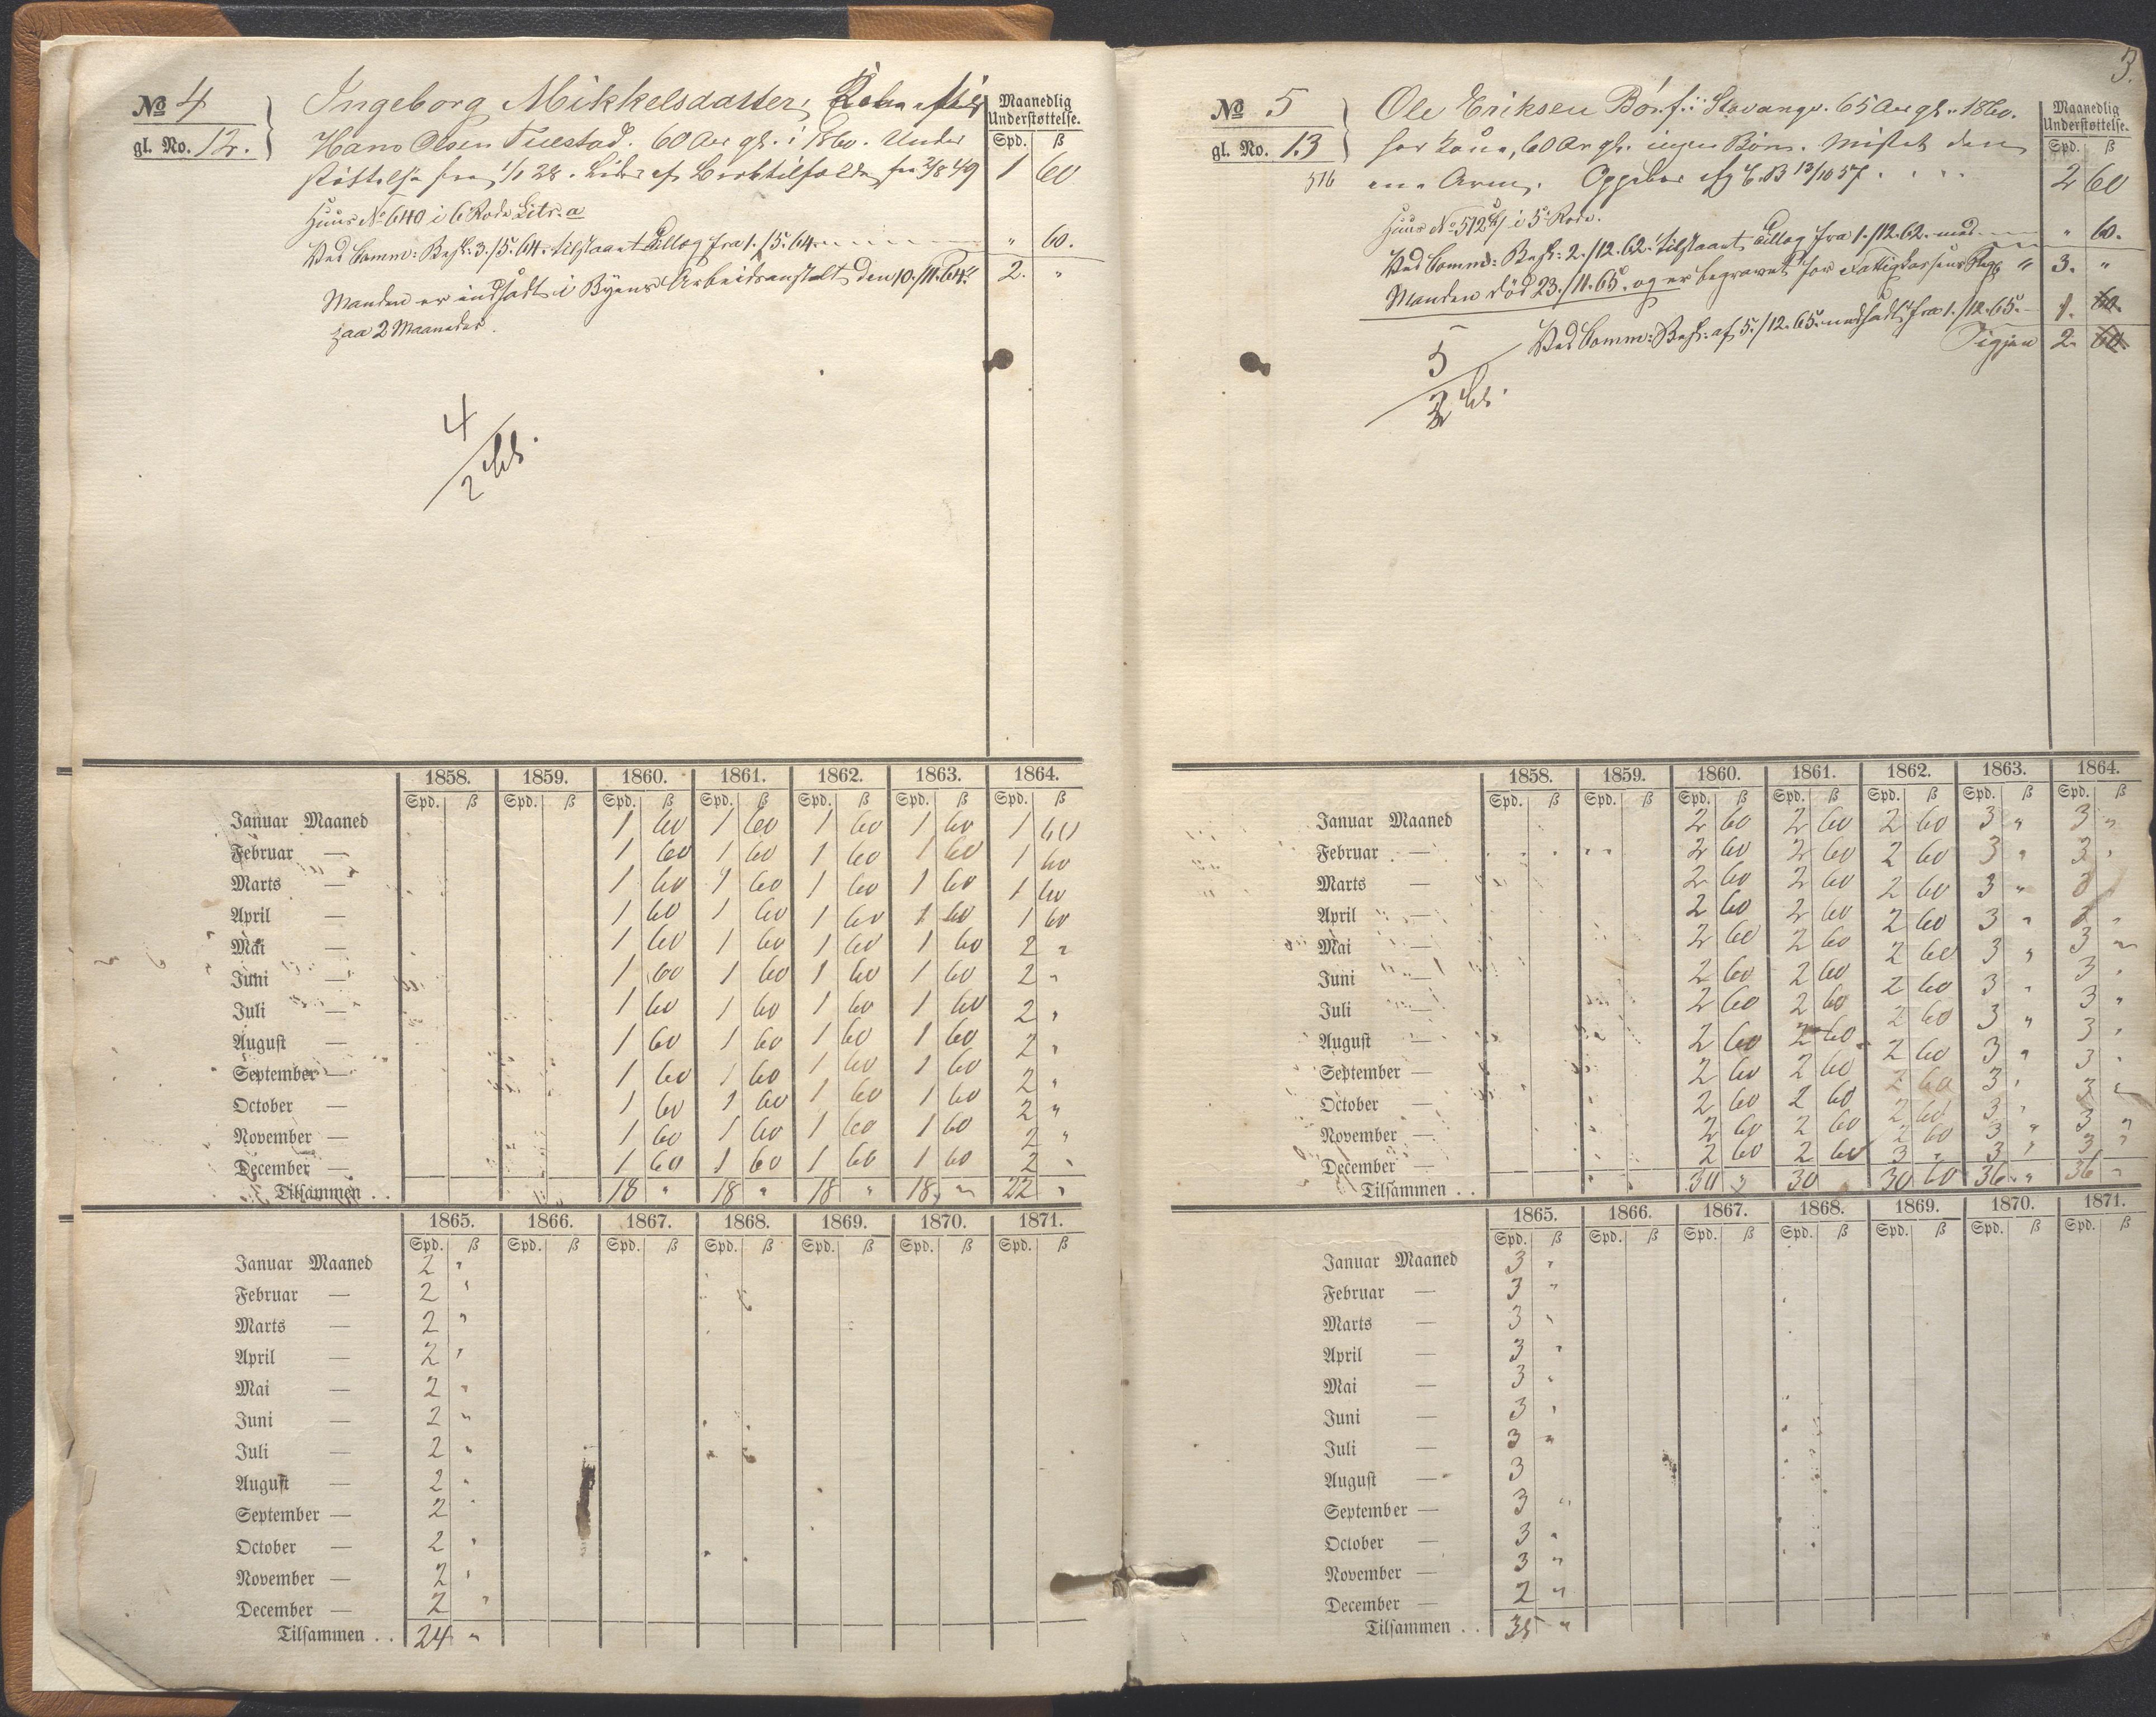 No 4
gl. No. 12.
Ingeborg Mikkelsdatter, Kone af
Hans Olsen Tuestad. 60 Aar gl. i 1860. Under
støttelse fra 1/1 28.
Huus No 640 i 6 Rode Litr. a
Ved Comm: Besl: 3./5. 64. tilstaaet Tillæg fra 1./5. 64.
Manden er indsadt i Byens Arbeidsanstalt den 10./11. 64
paa 2 Maaneder.
Maanedlig
Understøttelse.
Spd. ß
1 60
" 60.
2. "
4
2
1858. 1859. 1860. 1861. 1862. 1863. 1864.
Spd. ß Spd. ß Spd. ß Spd. ß Spd. ß Spd. ß Spd. ß
Januar Maaned 1 60 1 60 1 60 1 60 1 60
Februar — 1 60 1 60 1 60 1 60 1 60
Marts — 1 60 1 60 1 60 1 60 1 60
April — 1 60 1 60 1 60 1 60 1 60
Mai — 1 60 1 60 1 60 1 60 2 "
Juni — 1 60 1 60 1 60 1 60 2 "
Juli — 1 60 1 60 1 60 1 60 2 "
August — 1 60 1 60 1 60 1 60 2 "
September — 1 60 1 60 1 60 1 60 2 "
October — 1 60 1 60 1 60 1 60 2 "
November — 1 60 1 60 1 60 1 60 2 "
December — 1 60 1 60 1 60 1 60 2 "
Tilsammen . . 18 " 18 " 18 " 18 " 22 "
1865. 1866. 1867. 1868. 1869. 1870. 1871.
Spd. ß Spd. ß Spd. ß Spd. ß Spd. ß Spd. ß Spd. ß
Januar Maaned 2 "
Februar — 2 "
Marts — 2 "
April — 2 "
Mai — 2 "
Juni — 2 "
Juli — 2 "
August — 2 "
September — 2 "
October — 2 "
November — 2 "
December — 2 "
Tilsammen . . 24 "
3.
No 5
gl. No. 13
516
Ole Eriksen Bør. f. i Stavanger. 65 Aar gl. i 1860.
har Kone, 60 Aar gl. ingen Børn. Mistet den
ene Arm. Oppebær efter C. B 13/10 57
Huus No 512 i 5 Rode.
Ved Comm: Besl: 2./12. 62. tilstaaet Tillæg fra 1./12. 62. med
Manden død 23./11. 65. og er begravet for Fattigkassens Regg
Ved Comm: Besl: af 5./12. 65. nedsadt fra 1./12. 65.
Tigjen
Maanedlig
Understøttelse.
Spd. ß
2 60
" 60.
3. "
1. 60.
2. 60.
5
2
1858. 1859. 1860. 1861. 1862. 1863. 1864.
Spd. ß Spd. ß Spd. ß Spd. ß Spd. ß Spd. ß Spd. ß
Januar Maaned 2 60 2 60 2 60 3 " 3 "
Februar — 2 60 2 60 2 60 3 " 3 "
Marts — 2 60 2 60 2 60 3 " 3 "
April — 2 60 2 60 2 60 3 " 3 "
Mai — 2 60 2 60 2 60 3 " 3 "
Juni — 2 60 2 60 2 60 3 " 3 "
Juli — 2 60 2 60 2 60 3 " 3 "
August — 2 60 2 60 2 60 3 " 3 "
September — 2 60 2 60 2 60 3 " 3 "
October — 2 60 2 60 2 60 3 " 3 "
November — 2 60 2 60 2 60 3 " 3 "
December — 2 60 2 60 3 " 3 " 3 "
Tilsammen . . 30 " 30 30 60 36 " 36 "
1865. 1866. 1867. 1868. 1869. 1870. 1871.
Spd. ß Spd. ß Spd. ß Spd. ß Spd. ß Spd. ß Spd. ß
Januar Maaned 3 "
Februar — 3 "
Marts — 3 "
April — 3 "
Mai — 3 "
Juni — 3 "
Juli — 3 "
August — 3
September — 3 "
October — 3 "
November — 3 "
December — 2 "
Tilsammen . . 35 "